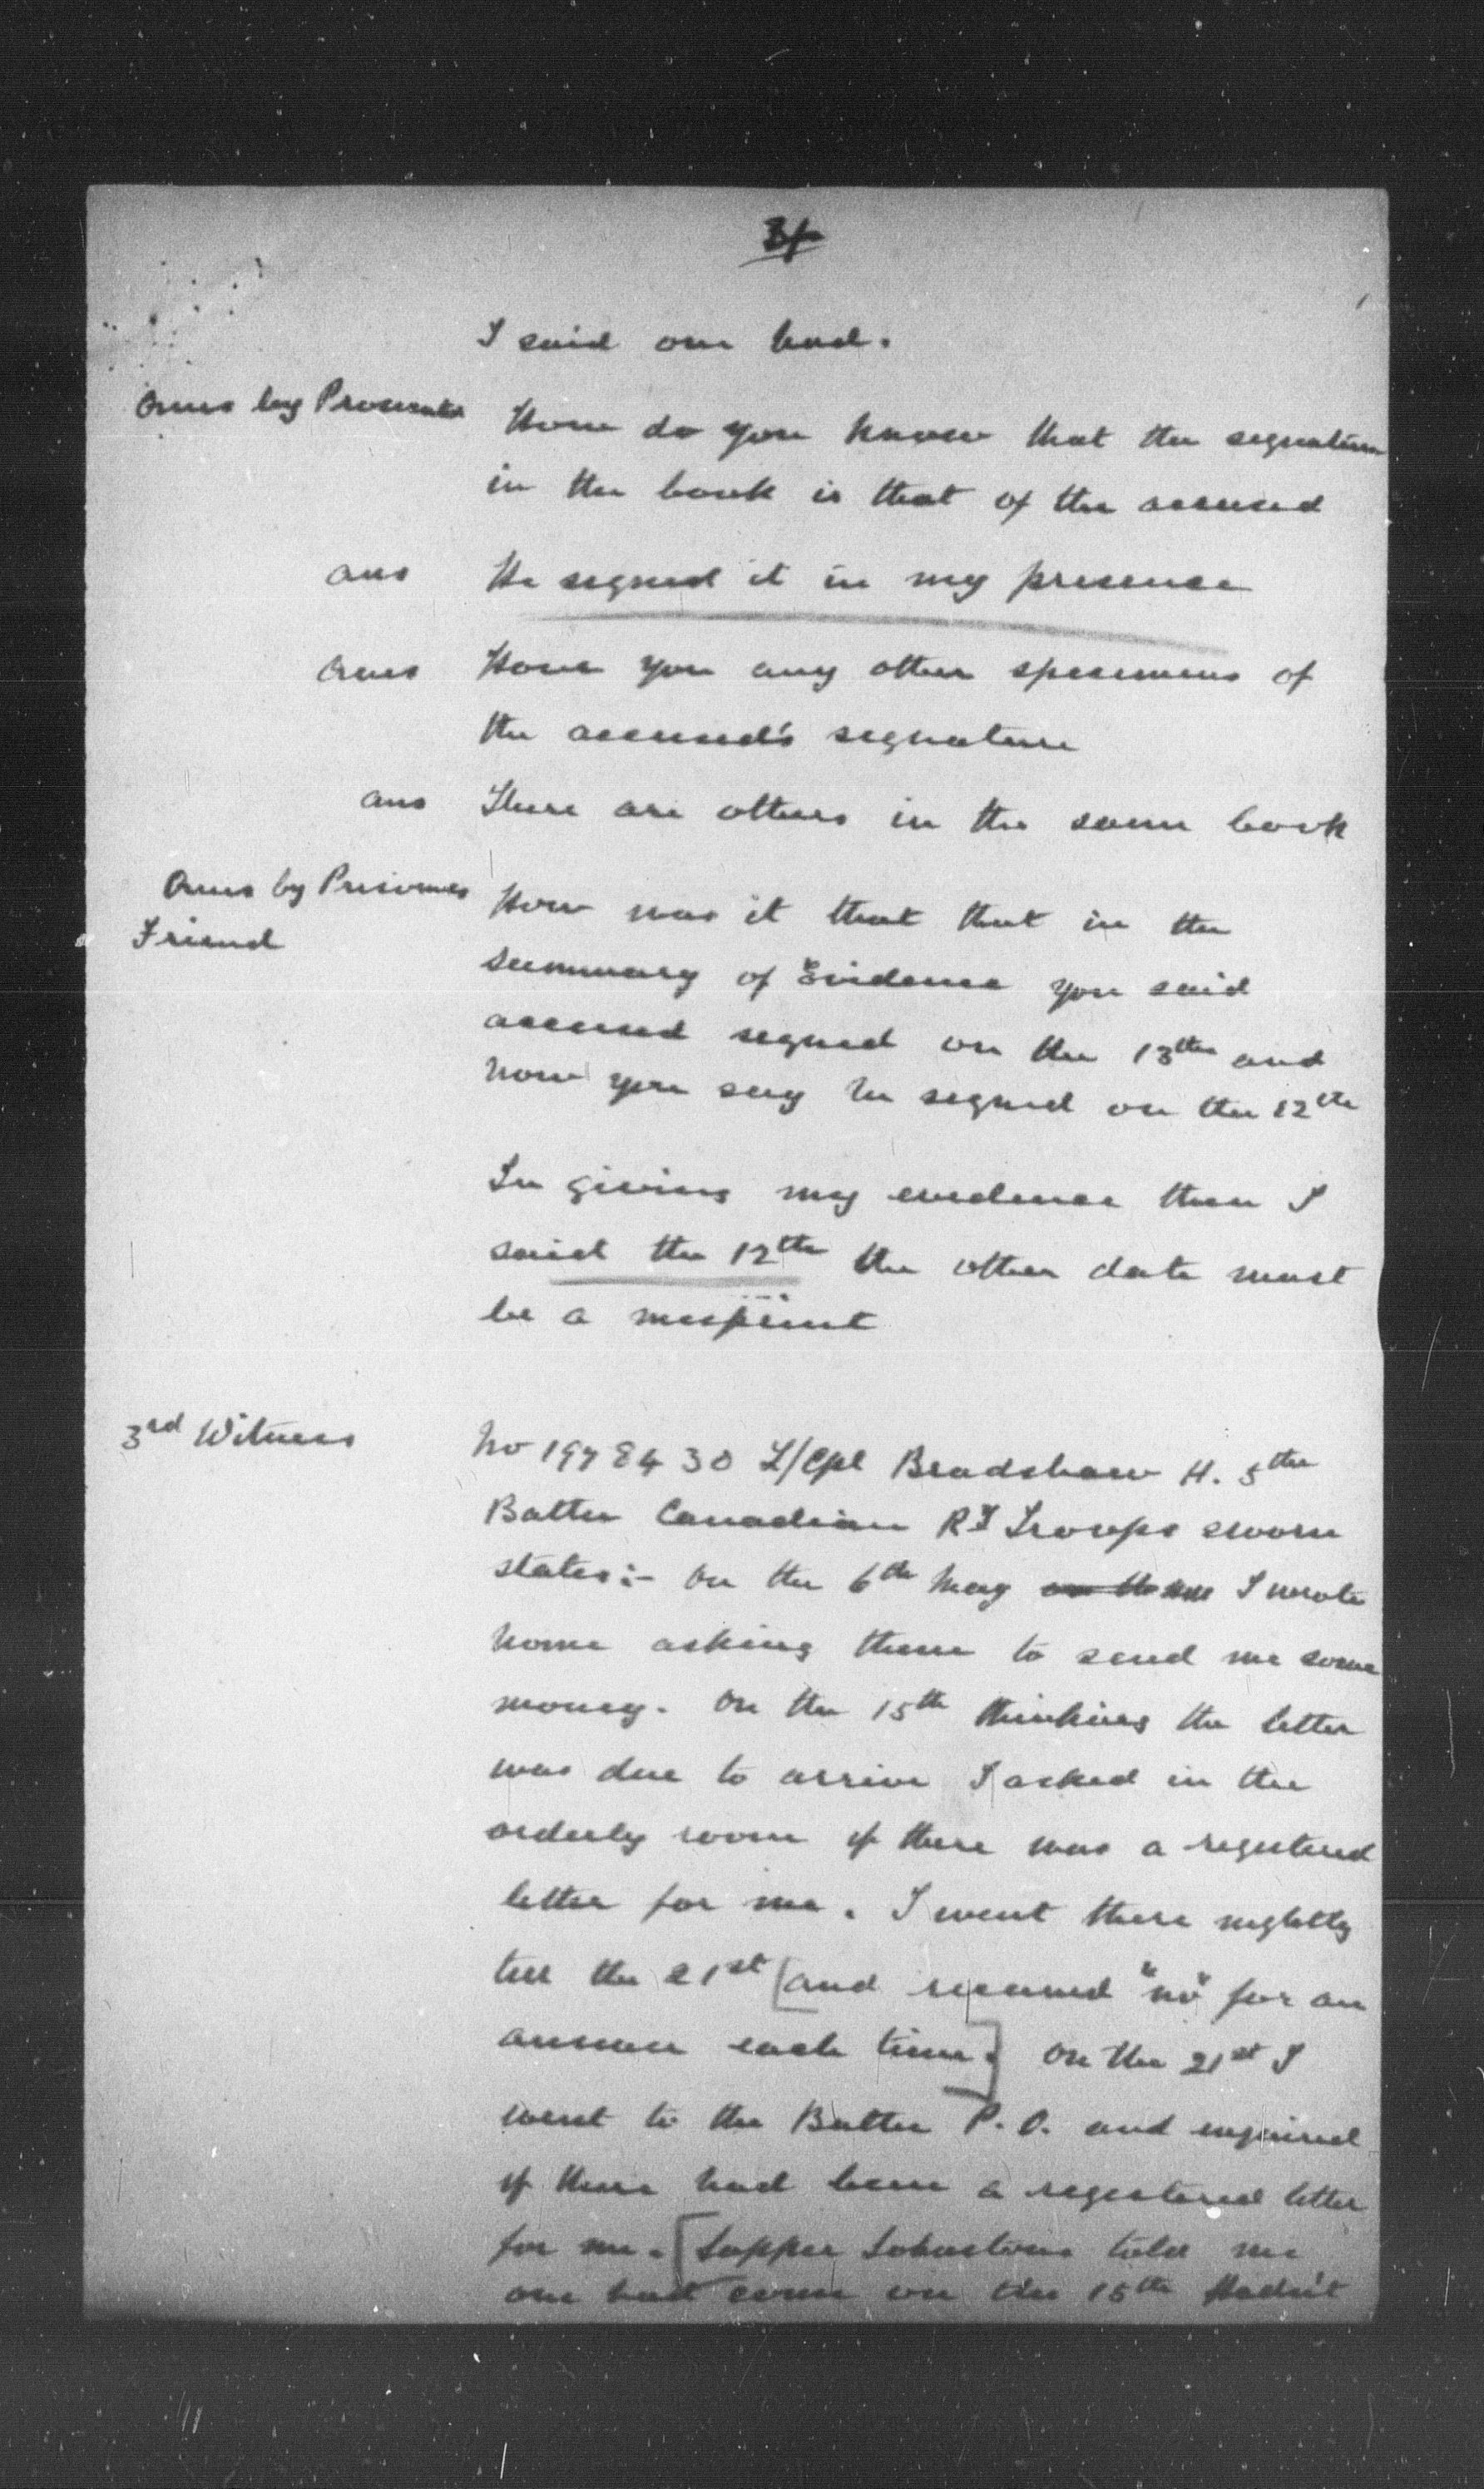 3/
I said one had.
Ques by Prosecutor How do you know that the signature
in the book is that of the accused
ans He signed it in my presence
Ques Have you any other specimens of
the accused's signature
ans There are others in the same book
Ques by Prisoners
Friend
How was it that that in the
summary of Evidence you said
accused signed on the 13th and
now you say he signed on the 12th
In giving my evidence then I
said the 12th the other date must
be a misprint
3rd Witness No 1978430 L/Cpl Bradshaw H. 5th
Battn Canadian Ry Troops sworn
states:- On the 6th May I wrote
home asking them to send me some
money. On the 15th thinking the letter
was due to arrive I asked in the
orderly room if there was a registered
letter for me. I went there nightly
till the 21st [and received "no" for an
answer each time.] On the 21st I
went to the Battn P.O. and enquired
if there had been a registered letter
for me. [Sapper Johnstone told me
one had come on the 15th Hadn't